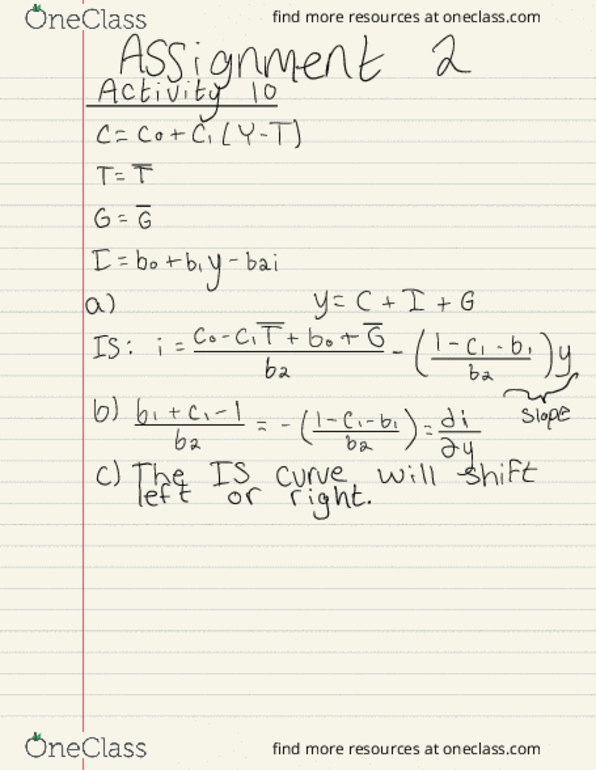 OneClass find more resources at oneclass.com
Assignment 2
Activity 10
C = C₀ + C₁ (Y-T)
T = T̅
G = G̅
I = b₀ + b₁y - b₂i
a) y = C + I + G
IS: i = (C₀ - C₁T̅ + b₀ + G̅)/b₂ - ((1 - C₁ - b₁)/b₂) y
slope
b) (b₁ + C₁ - 1)/b₂ = - ((1 - C₁ - b₁)/b₂) = ∂i/∂y
c) The IS curve will shift
left or right.
OneClass find more resources at oneclass.com